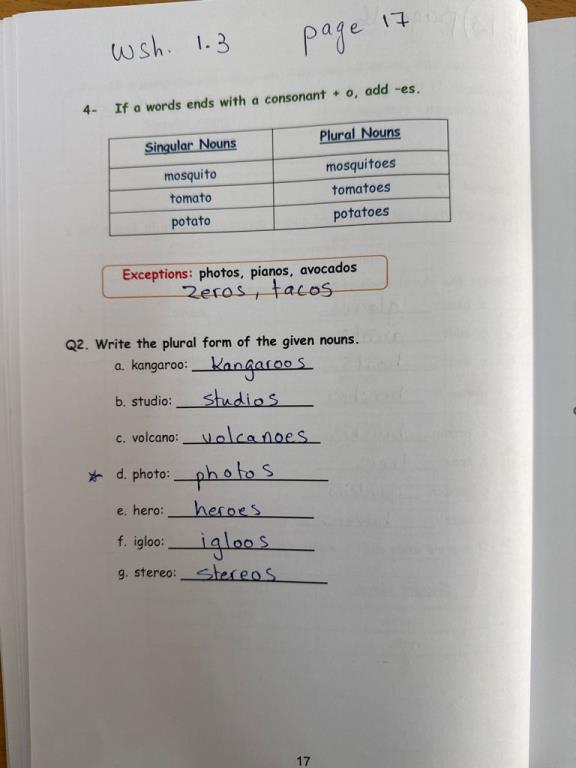 wsh. 1.3 page 17
4- If a words ends with a consonant + o, add -es.
Singular Nouns Plural Nouns
mosquito mosquitoes
tomato tomatoes
potato potatoes
Exceptions: photos, pianos, avocados
zeros, tacos
Q2. Write the plural form of the given nouns.
a. kangaroo: Kangaroos
b. studio: studios
c. volcano: volcanoes
d. photo: photos
e. hero: heroes
f. igloo: igloos
g. stereo: stereos
17